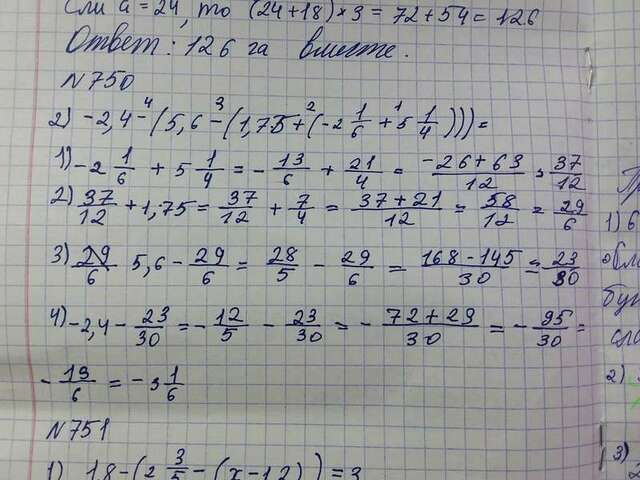 Сли a = 24, то (24+18)×3 = 72+54 = 126
Ответ: 126 га вместе.
N750
2) -2,4 -⁴ (5,6 -³ (1,75 +² (-2 1/6 +¹ 5 1/4))) =
1) -2 1/6 + 5 1/4 = - 13/6 + 21/4 = (-26+63)/12 = 37/12
2) 37/12 + 1,75 = 37/12 + 7/4 = (37+21)/12 = 58/12 = 29/6
3) 29/6 5,6 - 29/6 = 28/5 - 29/6 = (168-145)/30 = 23/30
4) -2,4 - 23/30 = - 12/5 - 23/30 = - (72+23)/30 = - 95/30 =
- 19/6 = -3 1/6
N751
1) 18-(2 3/5 - (x-12)) = 3
1) 6
2)
3)